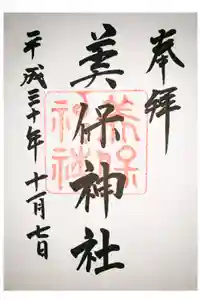 奉拝
美保神社
平成三十年十一月七日
美保
神社